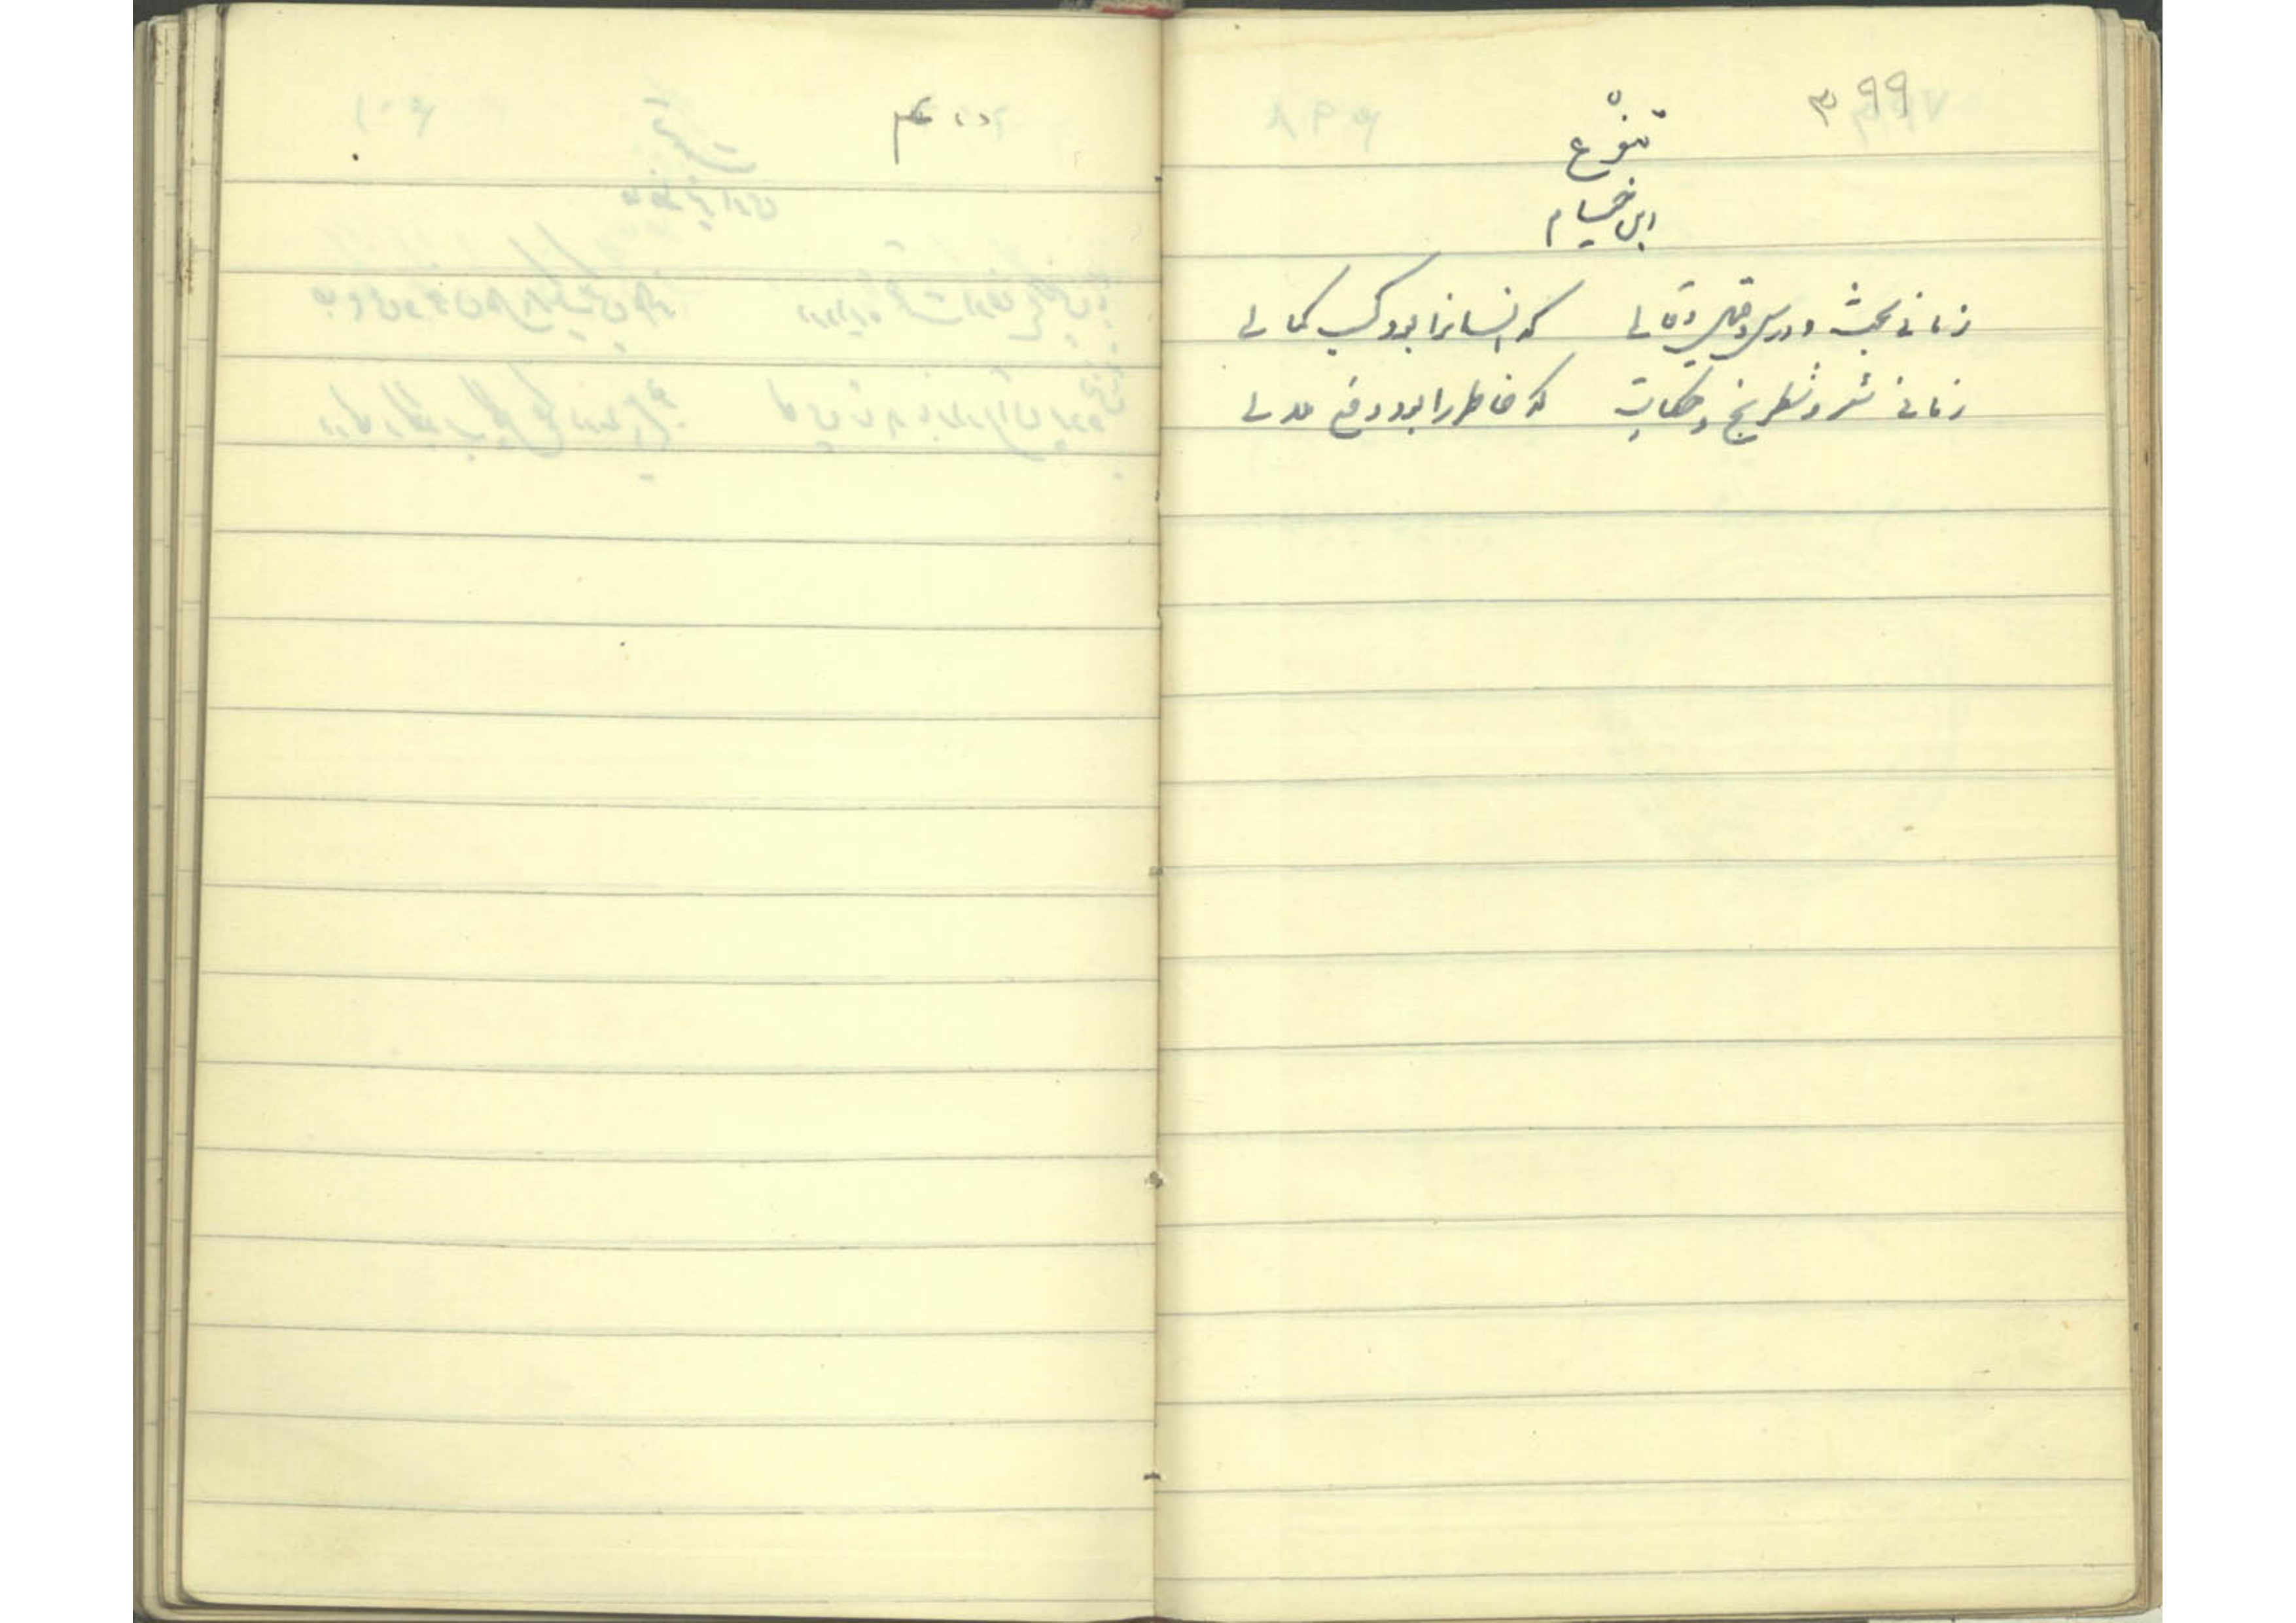 ۳۹۹
تنوّع
ابن
زمانی بحث و درس و قیل و قالی که انسانرا بود کسب کمالی
زمانی شعر و شطرنج و حکایت که خاطر را بود دفع ملالی
۴۰۰